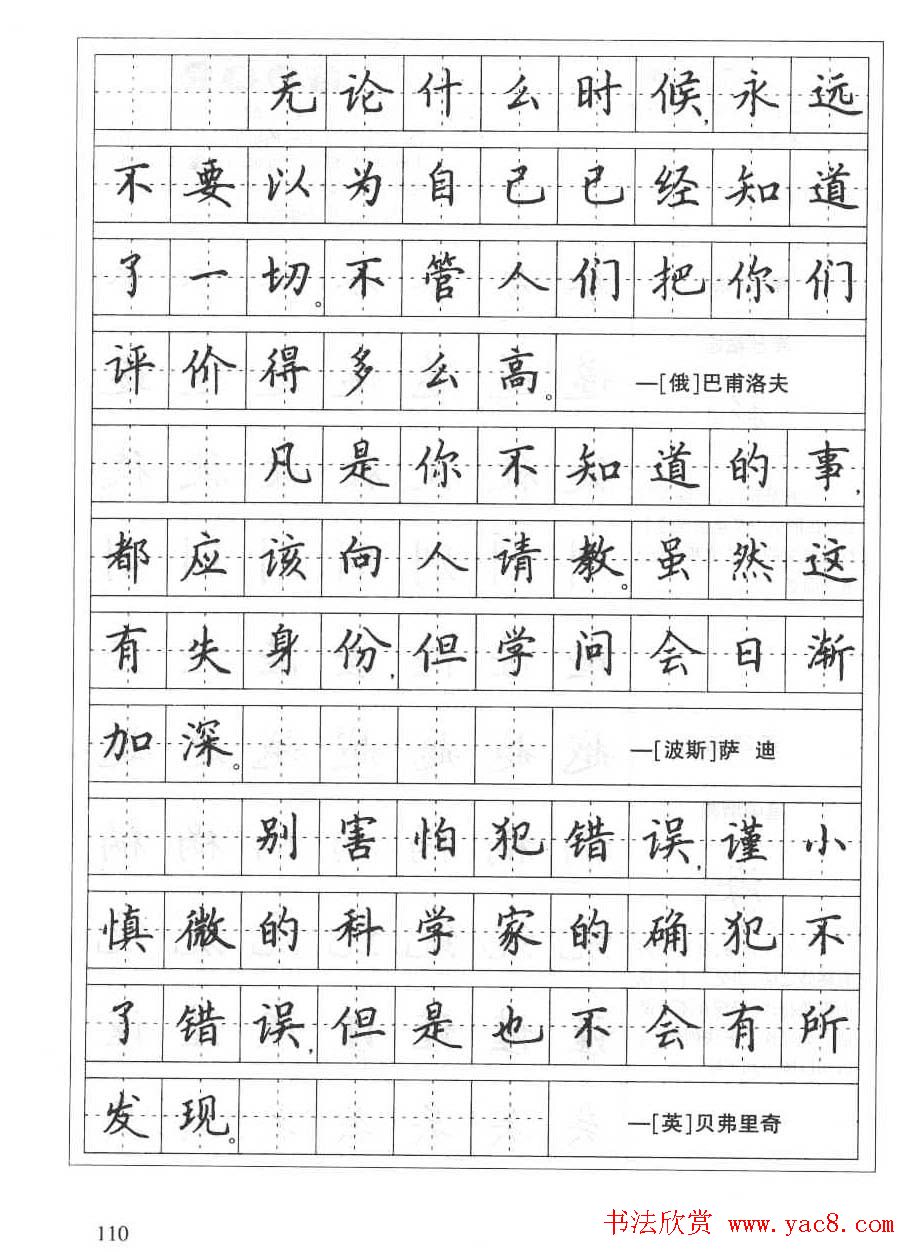 无论什么时候,永远
不要以为自己已经知道
了一切。不管人们把你们
评价得多么高。 —[俄]巴甫洛夫
凡是你不知道的事,
都应该向人请教。虽然这
有失身份,但学问会日渐
加深。 —[波斯]萨 迪
别害怕犯错误,谨小
慎微的科学家的确犯不
了错误,但是也不会有所
发现。 —[英]贝弗里奇
110
书法欣赏 www.yac8.com